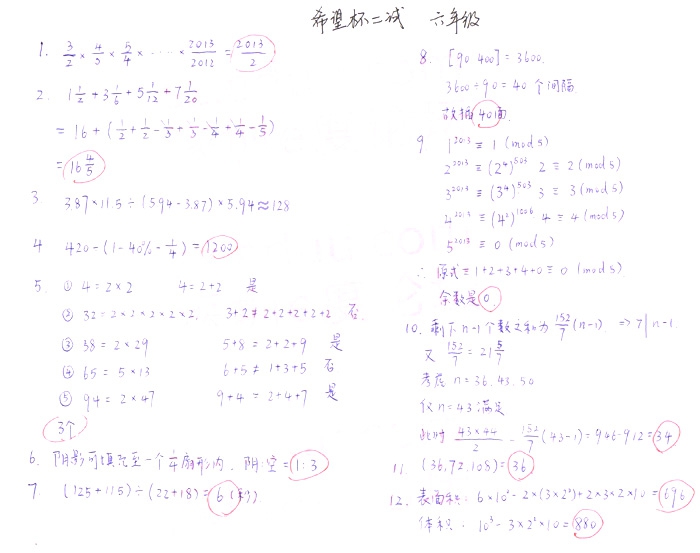 希望杯二试 六年级
1. 3/2 × 4/3 × 5/4 × ····· × 2013/2012 = 2013/2
2. 1 1/2 + 3 1/6 + 5 1/12 + 7 1/20
= 16 + (1/2 + 1/2 - 1/3 + 1/3 - 1/4 + 1/4 - 1/5)
= 16 4/5
3. 3.87×11.5÷(5.94-3.87)×5.94≈128
4 420÷(1-40%-1/4)=1200
5 ① 4=2×2 4=2+2 是
② 32=2×2×2×2×2. 3+2≠2+2+2+2+2 否.
③ 38=2×29 5+8=2+2+9 是
④ 65=5×13 6+5≠1+3+5 否
⑤ 94=2×47 9+4=2+4+7 是
3个
6. 阴影可填充至一个1/4扇形内. 阴:空=1:3
7 (125+115)÷(22+18)=6(秒)
8. [90 400]=3600.
3600÷90=40个间隔
故插40面.
9 1^2013 ≡ 1 (mod 5)
2^2013 ≡ (2^4)^503 2 ≡ 2 (mod 5)
3^2013 ≡ (3^4)^503 3 ≡ 3 (mod 5)
4^2013 ≡ (4^2)^1006 4 ≡ 4 (mod 5)
5^2013 ≡ 0 (mod 5)
∴ 原式≡1+2+3+4+0≡0 (mod 5)
余数是0.
10. 剩下n-1个数之和为 152/7 (n-1). => 7|n-1.
又 152/7 = 21 5/7
考虑 n=36.43.50
仅n=43满足
此时 43×44/2 - 152/7 (43-1)=946-912=34
11. (36,72,108)=36
12. 表面积: 6×10²-2×(3×2²)+2×3×2×10=696
体积: 10³-3×2²×10=880